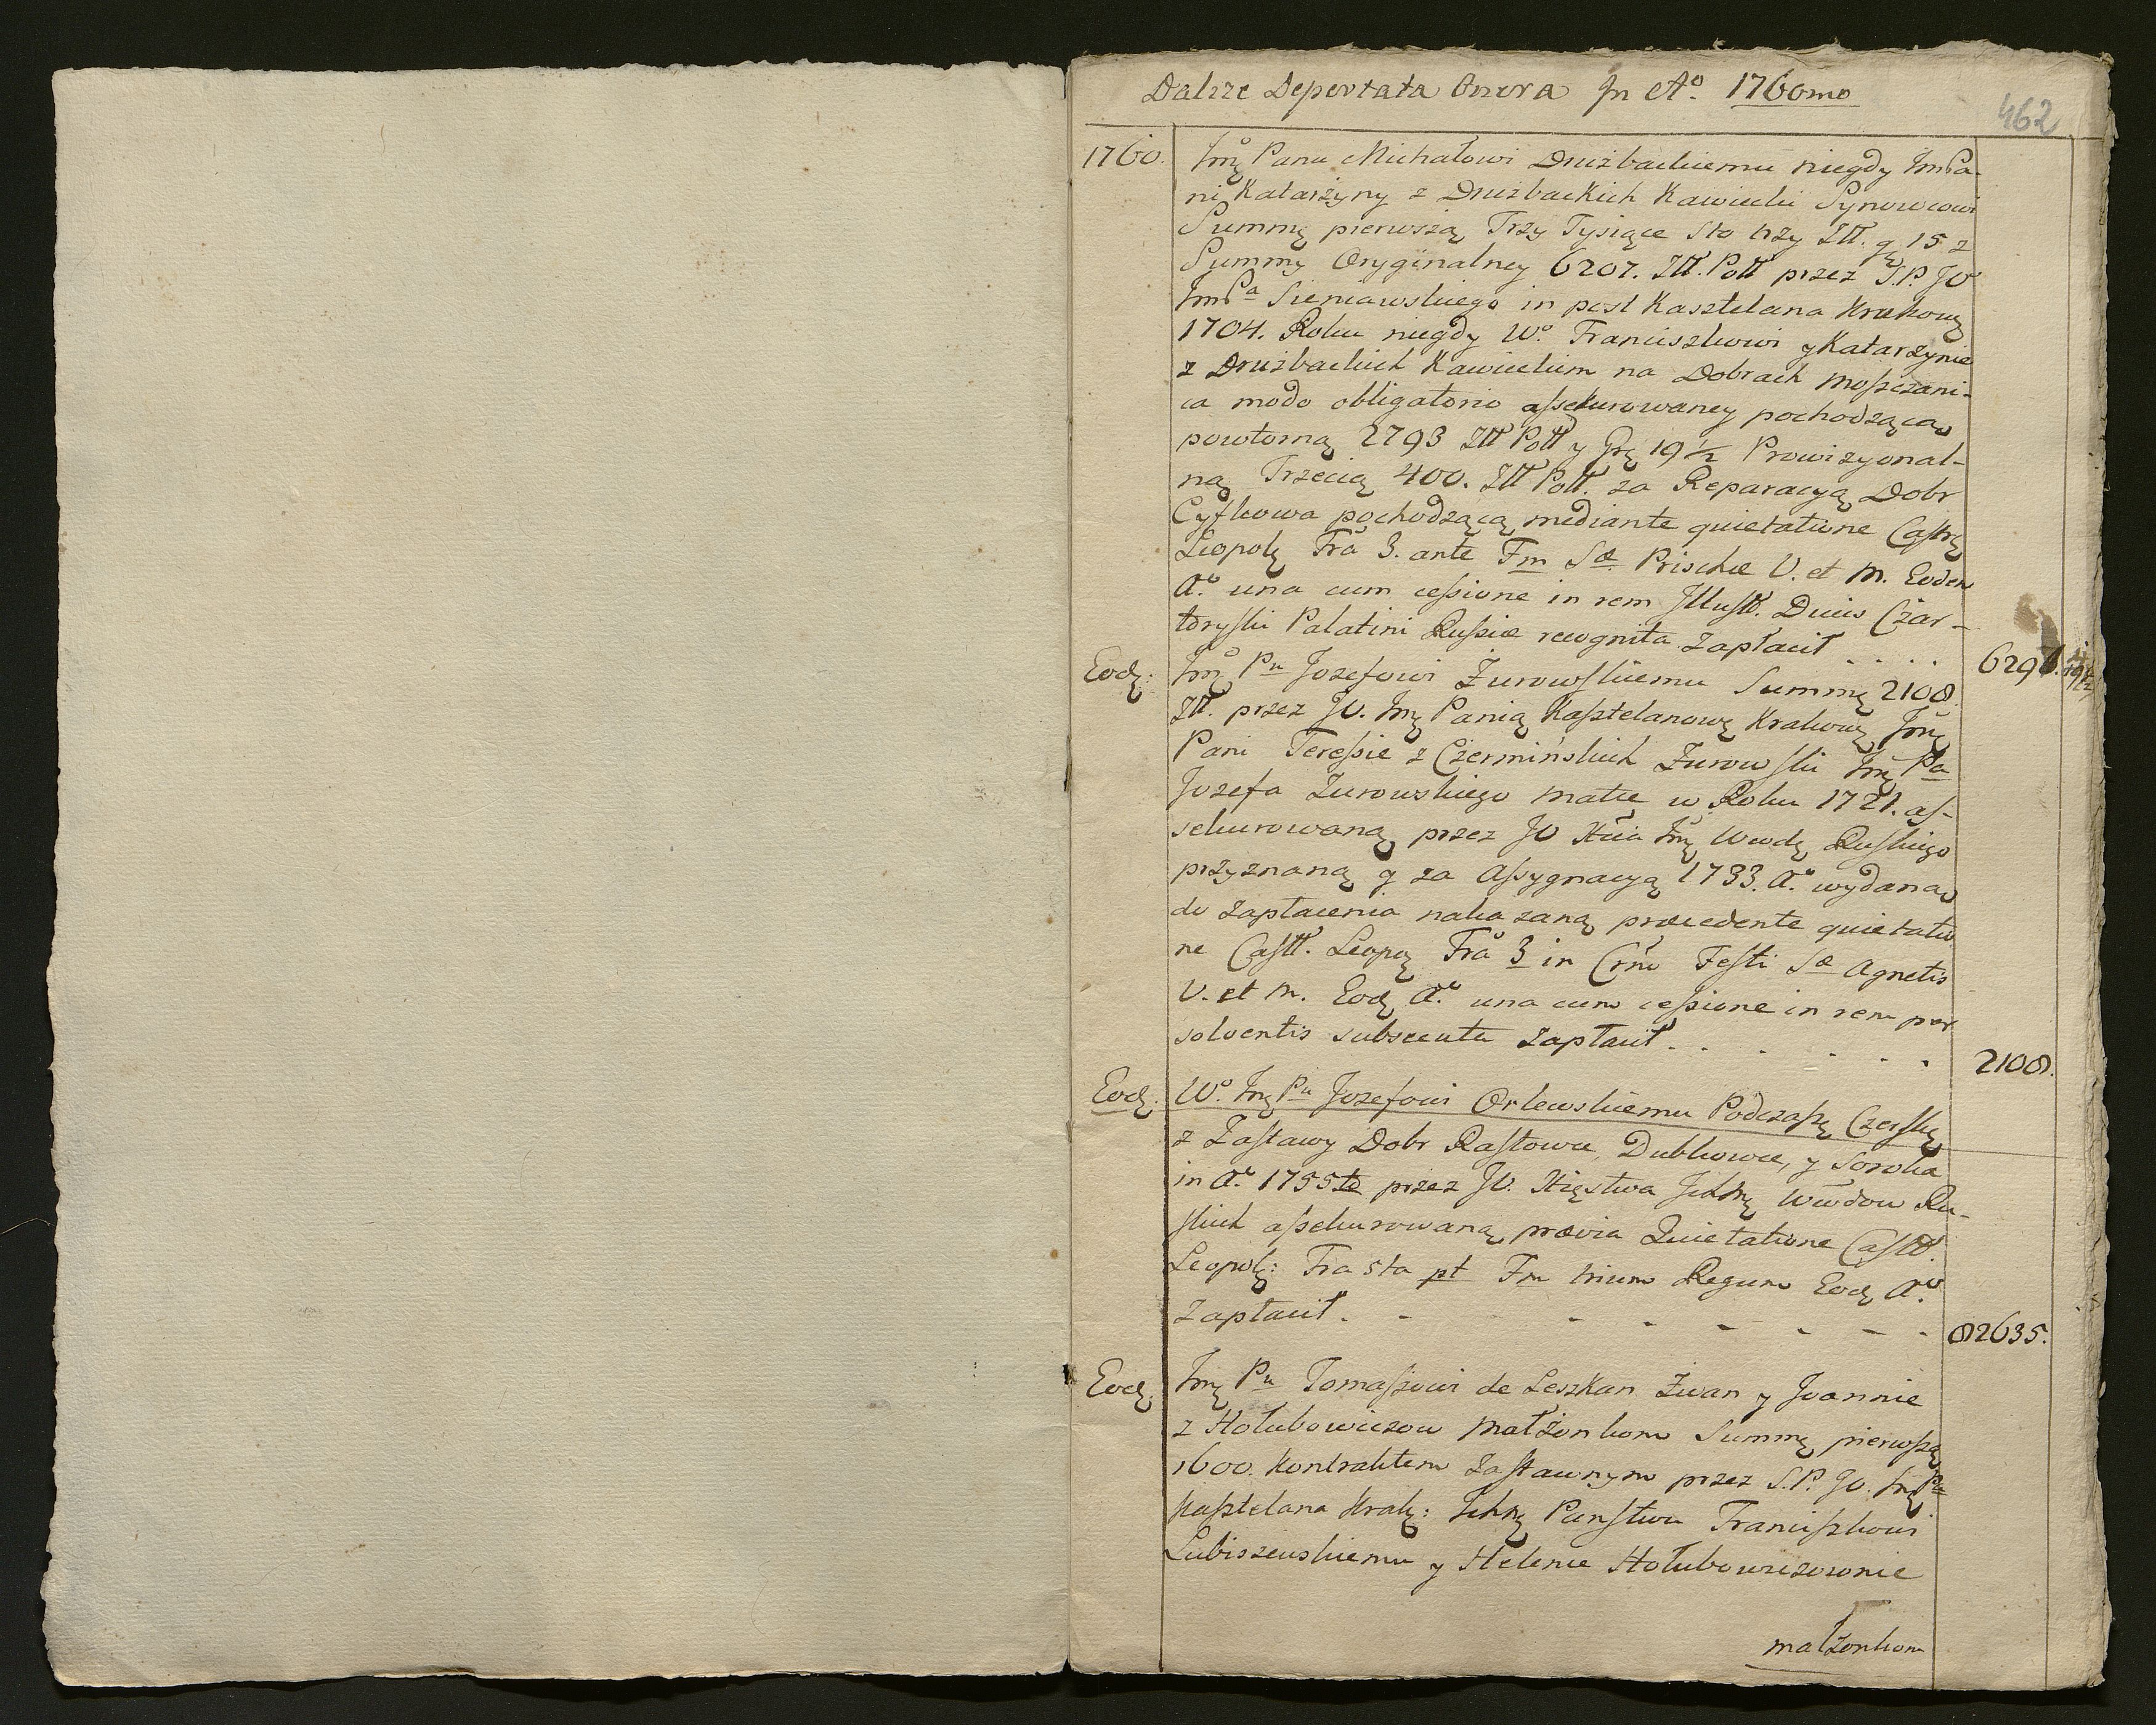 Dalsze Deportata Onera In Aº 1760mo
462
1760. Jmę Panu Michałowi Drużbackiemu niegdy JmPa-
ni Katarżyny z Drużbackich Kawiecki Synowcowi
Summę pierwszą Trzy Tysiące Sto trzy Złł. gr 15 z
Summy Oryginalney 6207. Złł. Poll przez S.P. JO
JmPa Sieniawskiego in post Kasztelana Krakowsg
1704. Roku niegdy Wº Franciszkowi y Katarzynie
z Drużbackich Kawieckim na Dobrach Mościzani-
ca modo obligatorio assekurowaney pochodzącą
powtorną 2793 Złł Poll y Grę 19½ Prowizyonal-
ną Trzecią 400. Złł Poll. za Reparacyą Dobr
Cyfkowa pochodzącą mediante quietatione Castrę
Leopolę Frâ 3. ante Fm Sæ Priscæ V. et M. Eodem
Aº una cum cessione in rem Illust. Ducis Czar-
toryski Palatini Russiæ recognita Zapłacił . . . . 6296. 19½
Eodę: Jmę Pu Jozefowi Żurowskiemu Summę 2108.
Złł. przez JO. Jmę Panią Kasztelanowę Krakowę Jmę
Pani Teressie z Czermińskich Żurowski Jmę Pa
Jozefa Żurowskiego Matce w Roku 1721. as-
sekurowaną przez JO Xcia Jmę Wwdę Ruskiego
przyznaną y za Assygnacyą 1733. Aº wydaną
do Zapłacenia nakazaną præcedente quietatio
ne Castł. Leopoę Frâ 3 in Crno Festi Sæ Agnetis
V. et M. Eodę Aº una cum cessione in rem per
solventis subsecuta Zapłacił . . . . . . 2108.
Eodę: Wº Jmę Pu Jozefowi Orlewskiemu Podczaszę Czerskę
z Zastawy Dobr Rastowce, Dubkowce, y Soroka
in Aº 1755to przez JO. Xięstwa Ichmę Wwdow Ru-
skich assekurowaną prævia Quietatione Castł.
Leopolę: Fra 5ta pt Fm trium Regum Eodę Aº
Zapłacił . - - - - - - - 82635.
Eodę: Jmę Pu Tomaszowi de Leszkan Zwan y Joannie
z Hołubowiczow Małżonkom Summę pierwszą
1600. Kontraktem Zastawnym przez S.P. JO. Jmę Pa
Kasztelana Krakę: Ichmę Państwu Franciszkowi
Lubiszewskiemu y Helenie Hołubowiczownie
małżonkom